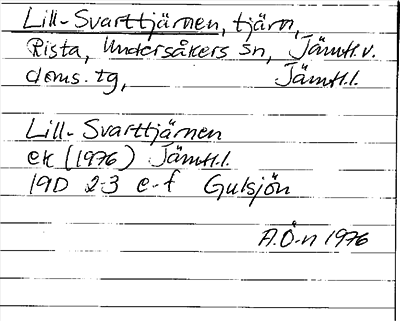 Lill-Svarttjärnen, tjärn,
Rista, Undersåkers sn, Jämtl.v.
doms. tg, Jämtl.l.
Lill-Svarttjärnen
ek (1976) Jämtl.l.
19D 2-3 e-f Gulsjön
A.Ö-n 1976